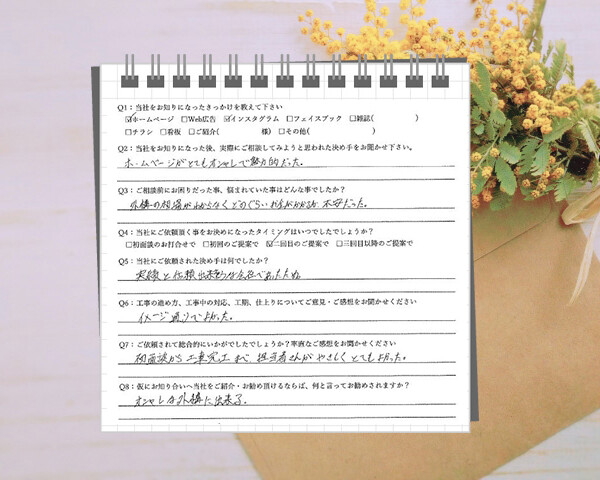 Q1：当社をお知りになったきっかけを教えて下さい
☑ホームページ □Web広告 ☑インスタグラム □フェイスブック □雑誌( )
□チラシ □看板 □ご紹介( 様) □その他( )
Q2：当社をお知りになった後、実際にご相談してみようと思われた決め手をお聞かせ下さい。
ホームページがとてもオシャレで魅力的だった。
Q3：ご相談前にお困りだった事、悩まれていた事はどんな事でしたか？
外構の相場がわからなくどのぐらいお金がかかるか不安だった。
Q4：当社にご依頼頂く事をお決めになったタイミングはいつでしたでしょうか？
□初面談のお打合せで □初回のご提案で ☑二回目のご提案で □三回目以降のご提案で
Q5：当社にご依頼された決め手は何でしたか？
実績と信頼出来そうな会社であったため
Q6：工事の進め方、工事中の対応、工期、仕上りについてご意見・ご感想をお聞かせください
イメージ通りでよかった。
Q7：ご依頼されて総合的にいかがでしたでしょうか？率直なご感想をお聞かせください
初面談から工事完工まで担当者さんがやさしくとてもよかった。
Q8：仮にお知り合いへ当社をご紹介・お勧め頂けるならば、何と言ってお勧めされますか？
オシャレな外構に出来る。